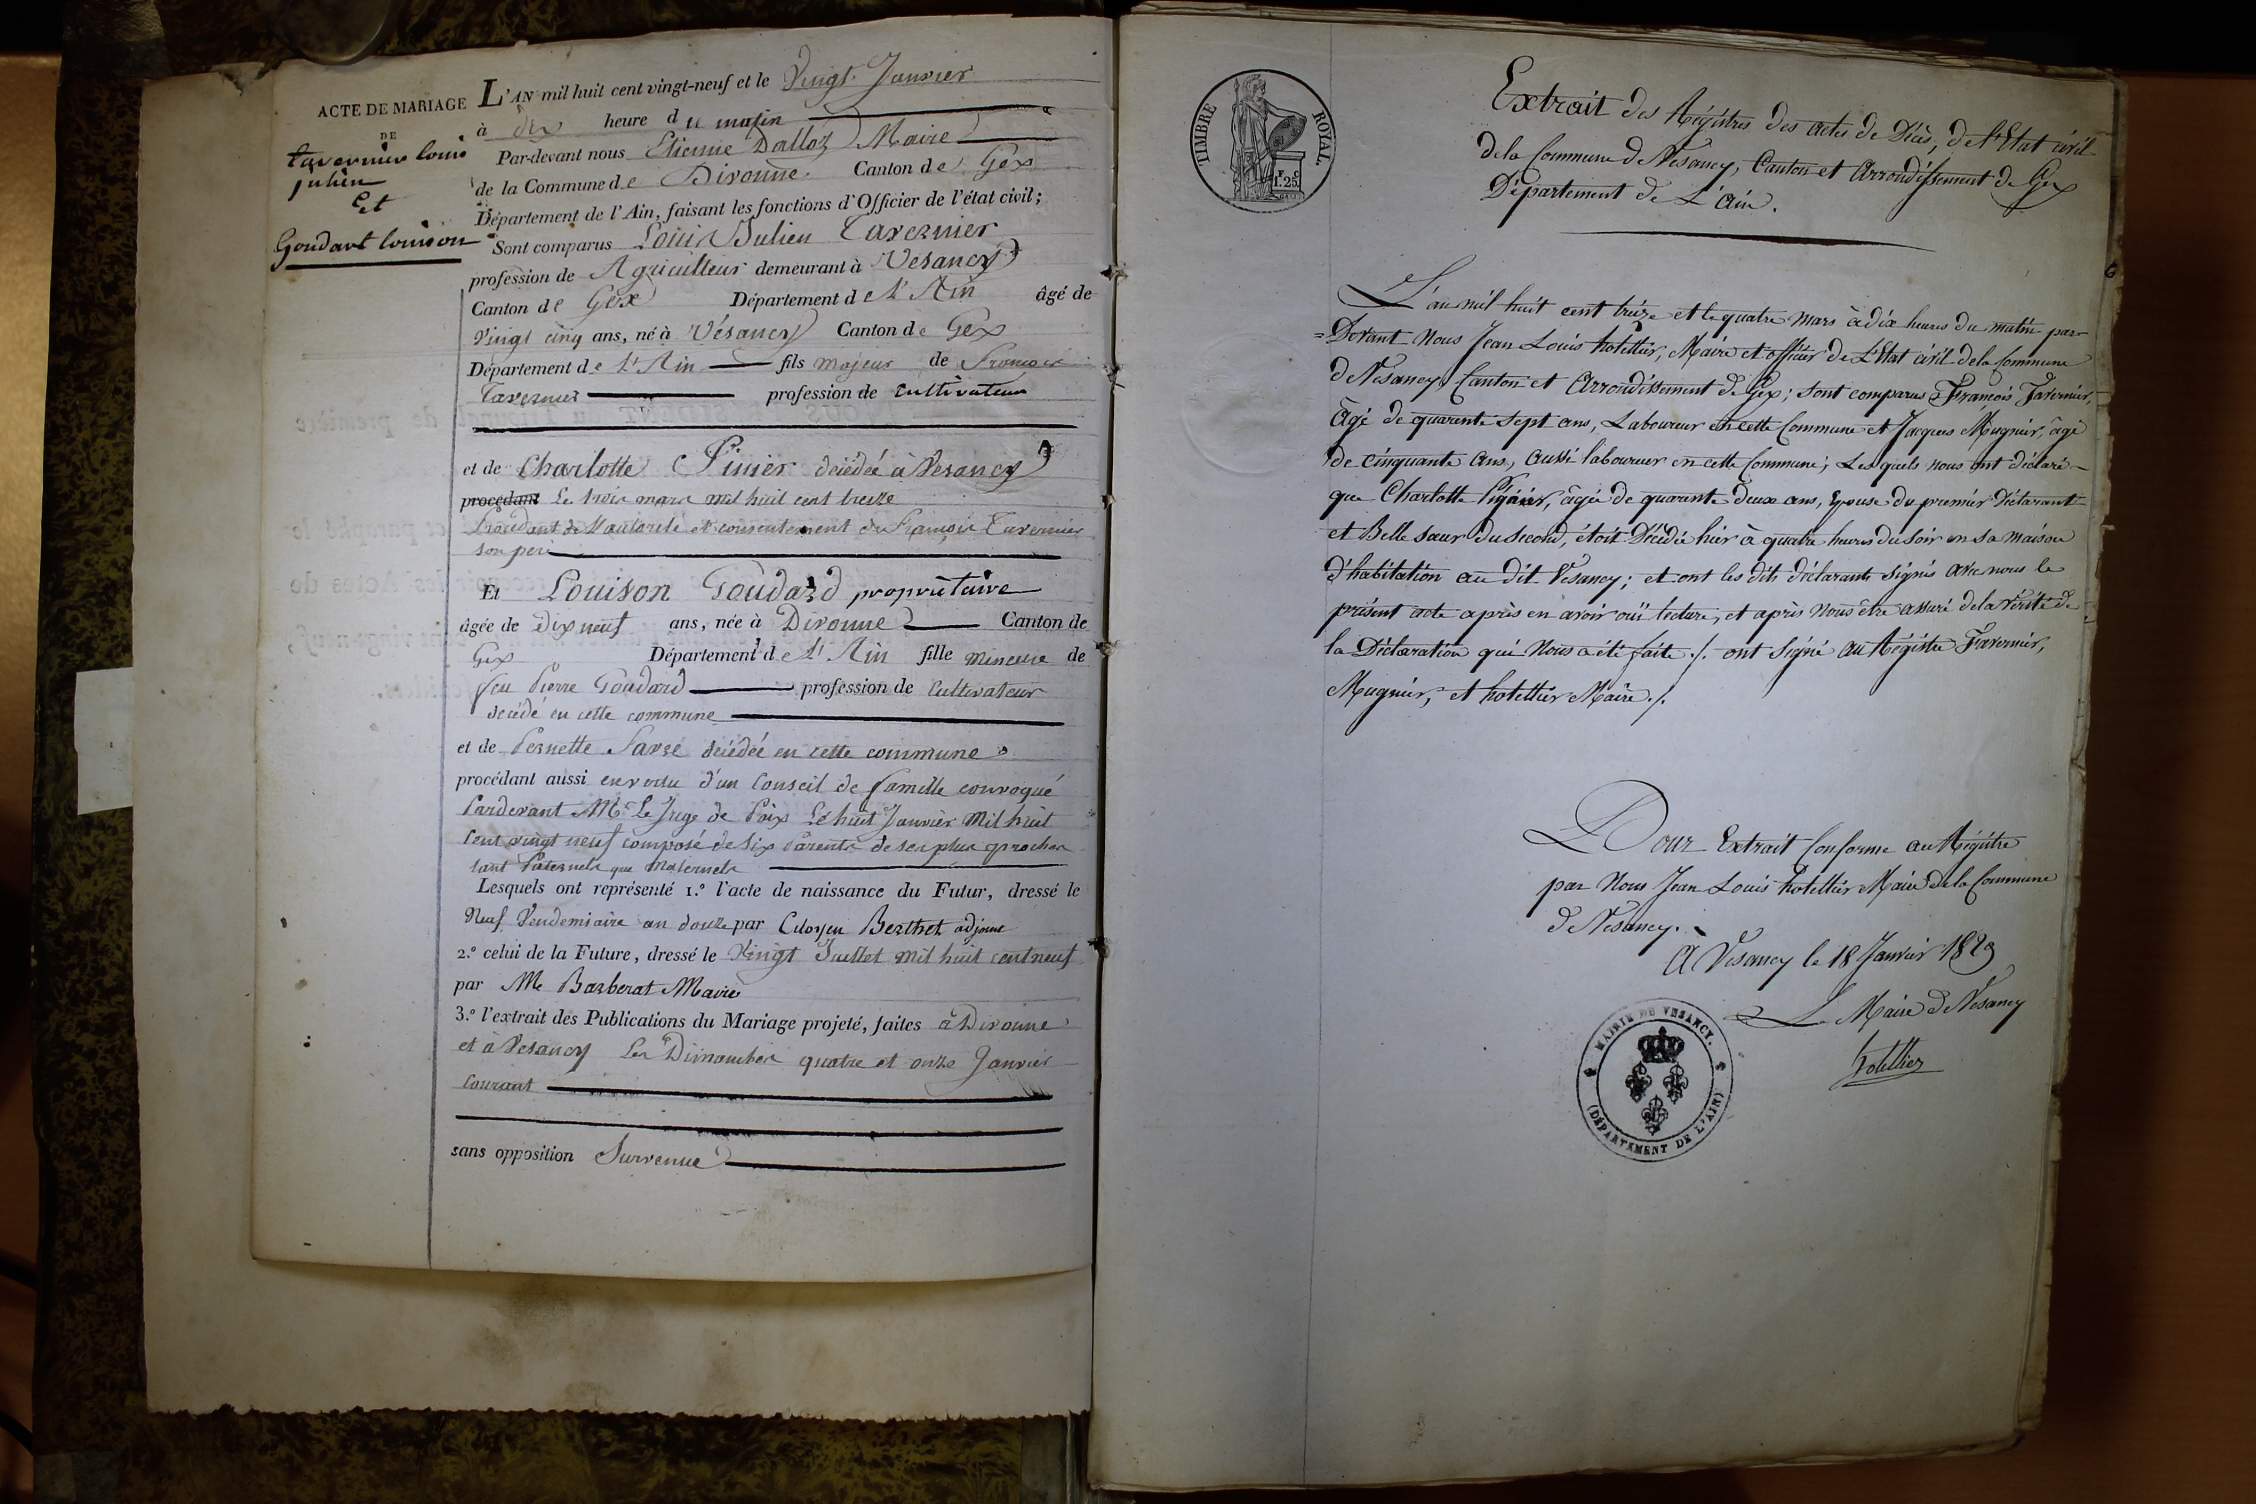 ACTE DE MARIAGE
DE
tavernier louis
julien
Et
Goudard louison
L'AN mil huit cent vingt-neuf et le Vingt Janvier
à dix heure du matin
Par-devant nous Etienne Dalloz Maire
de la Commune de Divonne Canton de Gex
Département de l'Ain, faisant les fonctions d'Officier de l'état civil;
Sont comparus Louis Julien Tavernier
profession de Agriculteur demeurant à Vesancy
Canton de Gex Département de L'Ain âgé de
vingt cinq ans, né à Vésancy Canton de Gex
Département de L'Ain fils majeur de François
Tavernier profession de Cultivateur
et de Charlotte décédée à Vesancy
procédant Le trois mars mil huit cent treize
Procédant de L'autorité et consentement de François Tavernier
son père
Et Louison Goudard propriétaire
âgée de dix neuf ans, née à Divonne Canton de
Gex Département de L'Ain fille mineure de
feu Pierre Goudard profession de Cultivateur
décédé en cette commune
et de Pernette décédée en cette commune
procédant aussi en vertu d'un Conseil de famille convoqué
Pardevant Mr Le Juge de Paix Le huit Janvier Mil huit
Cent vingt neuf composé de Six Parents de ses plus proches
tant Paternels que Maternels
Lesquels ont représenté 1.º l'acte de naissance du Futur, dressé le
Neuf Vendemiaire an douze par Citoyen Berthet adjoint
2.º celui de la Future, dressé le Vingt Juillet Mil huit cent neuf
par Mr Barberat Maire
3.º l'extrait des Publications du Mariage projeté, faites à Divonne
et à Vesancy Les Dimanches quatre et onze Janvier
Courant
sans opposition Survenue
TIMBRE ROYAL
F C
1.25
Extrait des Régistres des actes de Décès, de L'Etat civil
de la Commune de Vesancy, Canton et Arrondissement de Gex
Département de L'ain.
L'an mil huit cent treize et le quatre mars à dix heures du matin par
=Devant Nous Jean Louis hotellier, Maire et officier de L'Etat civil de la Commune
de Vesancy Canton et Arrondissement de Gex; sont comparus François Tavernier,
âgé de quarente sept ans, Laboureur en cette Commune et Jacques Mugnier, âgé
de cinquante ans, aussi laboureur en cette Commune; Lesquels nous ont déclaré
que Charlotte âgée de quarente deux ans, Epouse du premier Déclarant
et Belle sœur du second, étoit Décédée hier à quatre heures du soir en sa maison
d'habitation au dit Vesancy; et ont les dits déclarants signés avec nous le
présent acte après en avoir ouï lecture, et après nous être assuré de la vérité de
la Déclaration qui Nous a été faite ./. ont signé au Régistre Tavernier,
Mugnier, et hotellier Maire ./.
Pour Extrait Conforme au Régitre
par Nous Jean Louis hotellier Maire de la Commune
de Vesancy.
A Vesancy le 18 Janvier 1829
Le Maire de Vesancy
hotellier
MAIRIE DE VESANCY.
(DÉPARTEMENT DE L'AIN)